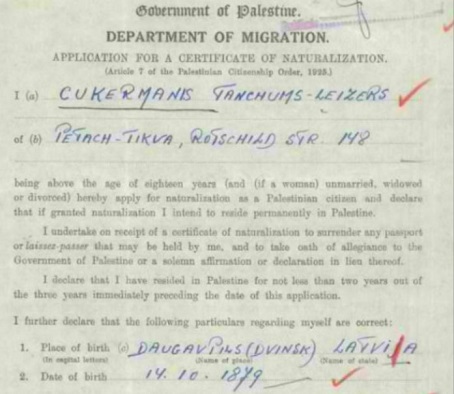 Government of Palestine.
DEPARTMENT OF MIGRATION.
APPLICATION FOR A CERTIFICATE OF NATURALIZATION.
(Article 7 of the Palestinian Citizenship Order, 1925.)
I (a) CUKERMANIS TANCHUMS-LEIZERS
of (b) PETACH-TIKVA, ROTSCHILD STR. 148
being above the age of eighteen years (and (if a woman) unmarried, widowed
or divorced) hereby apply for naturalization as a Palestinian citizen and declare
that if granted naturalization I intend to reside permanently in Palestine.
I undertake on receipt of a certificate of naturalization to surrender any passport
or laissez-passer that may be held by me, and to take oath of allegiance to the
Government of Palestine or a solemn affirmation or declaration in lieu thereof.
I declare that I have resided in Palestine for not less than two years out of
the three years immediately preceding the date of this application.
I further declare that the following particulars regarding myself are correct:
1. Place of birth (c) DAUGAVPILS (DVINSK) LATVIJA
(In capital letters) (Name of place) (Name of state)
2. Date of birth 14. 10. 1879